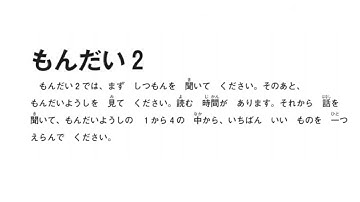 もんだい2
もんだい2では、まず しつもんを 聞いて ください。そのあと、
もんだいようしを 見て ください。読む 時間が あります。それから 話を
聞いて、もんだいようしの 1から4の 中から、いちばん いい ものを 一つ
えらんで ください。